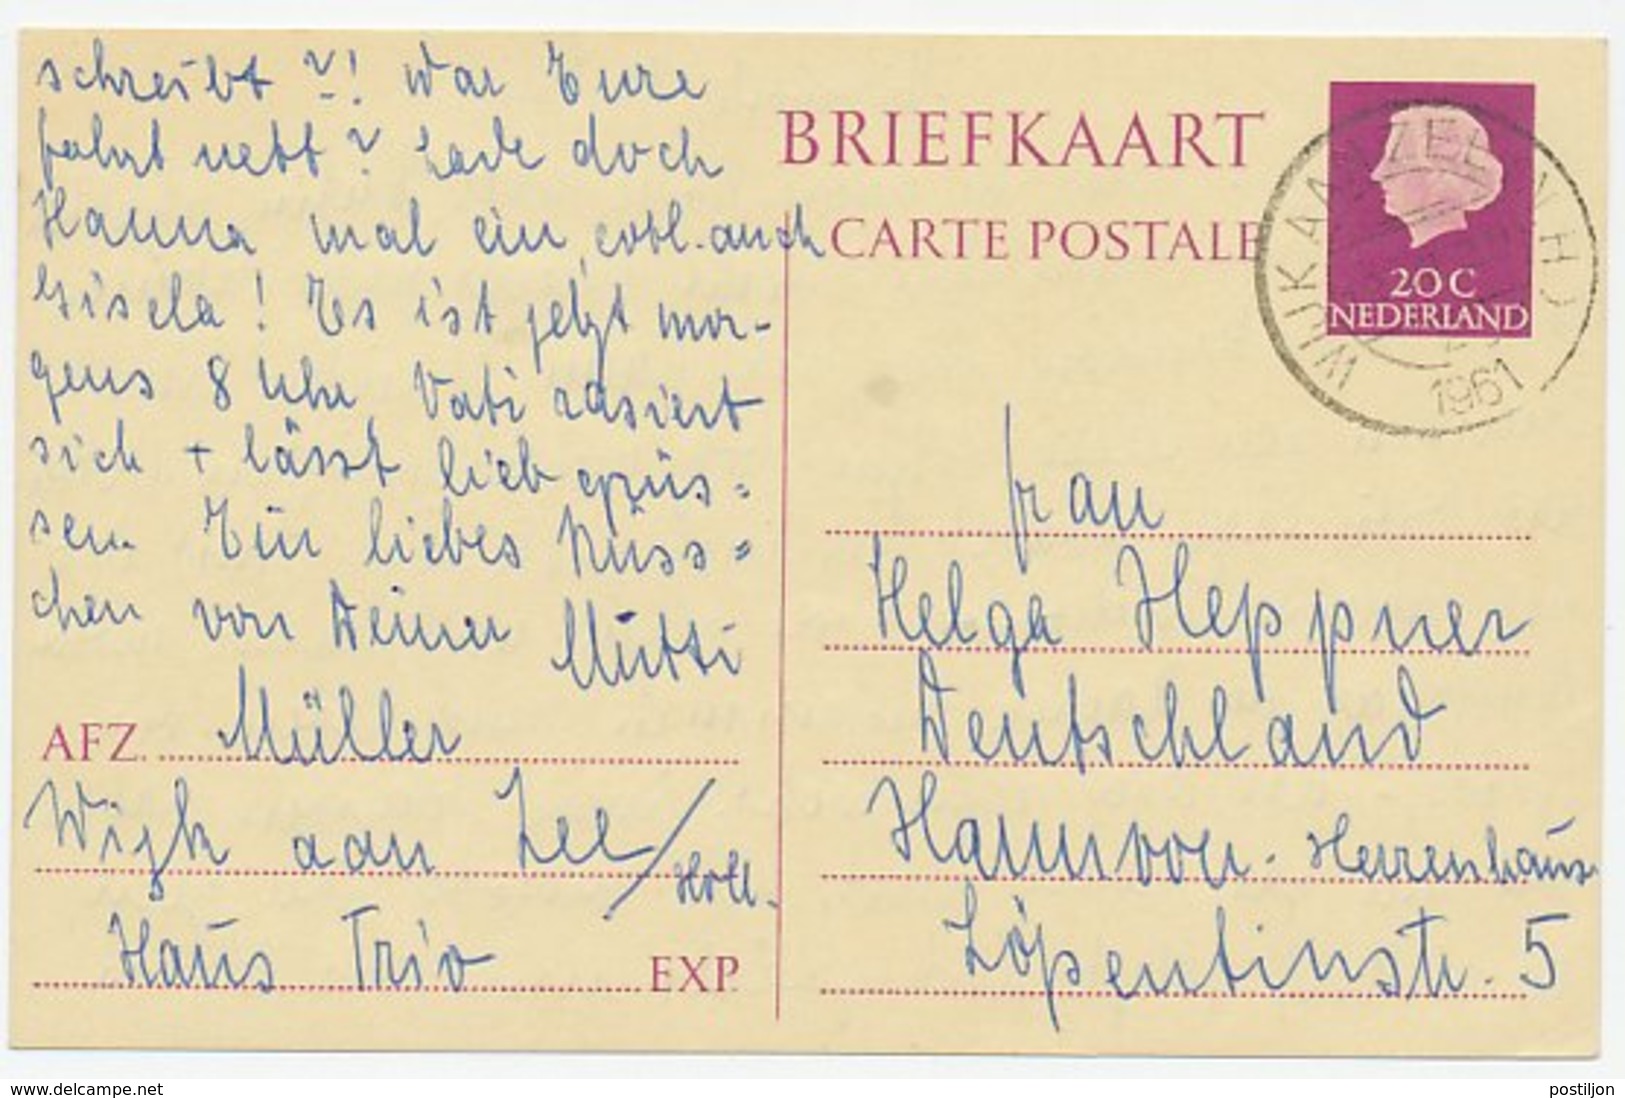 schreibt ?! War Eure
fahrt nett? Lade doch
Hanna mal ein, evtl. auch
Gisela! Es ist jetzt mor-
gens 8 Uhr Vati rasiert
sich + lässt lieb grüs=
sen. Ein liebes Küss=
chen von Deiner Mutti
AFZ. Müller
Wijk aan Zee / Holl.
Haus Trio EXP.
BRIEFKAART
CARTE POSTALE
20 C
NEDERLAND
WIJK AAN ZEE N.H.
1961
Frau
Helga Heppner
Deutschland
Hannover - Herrenhaus
Löpentinstr. 5
www.delcampe.net
postiljon